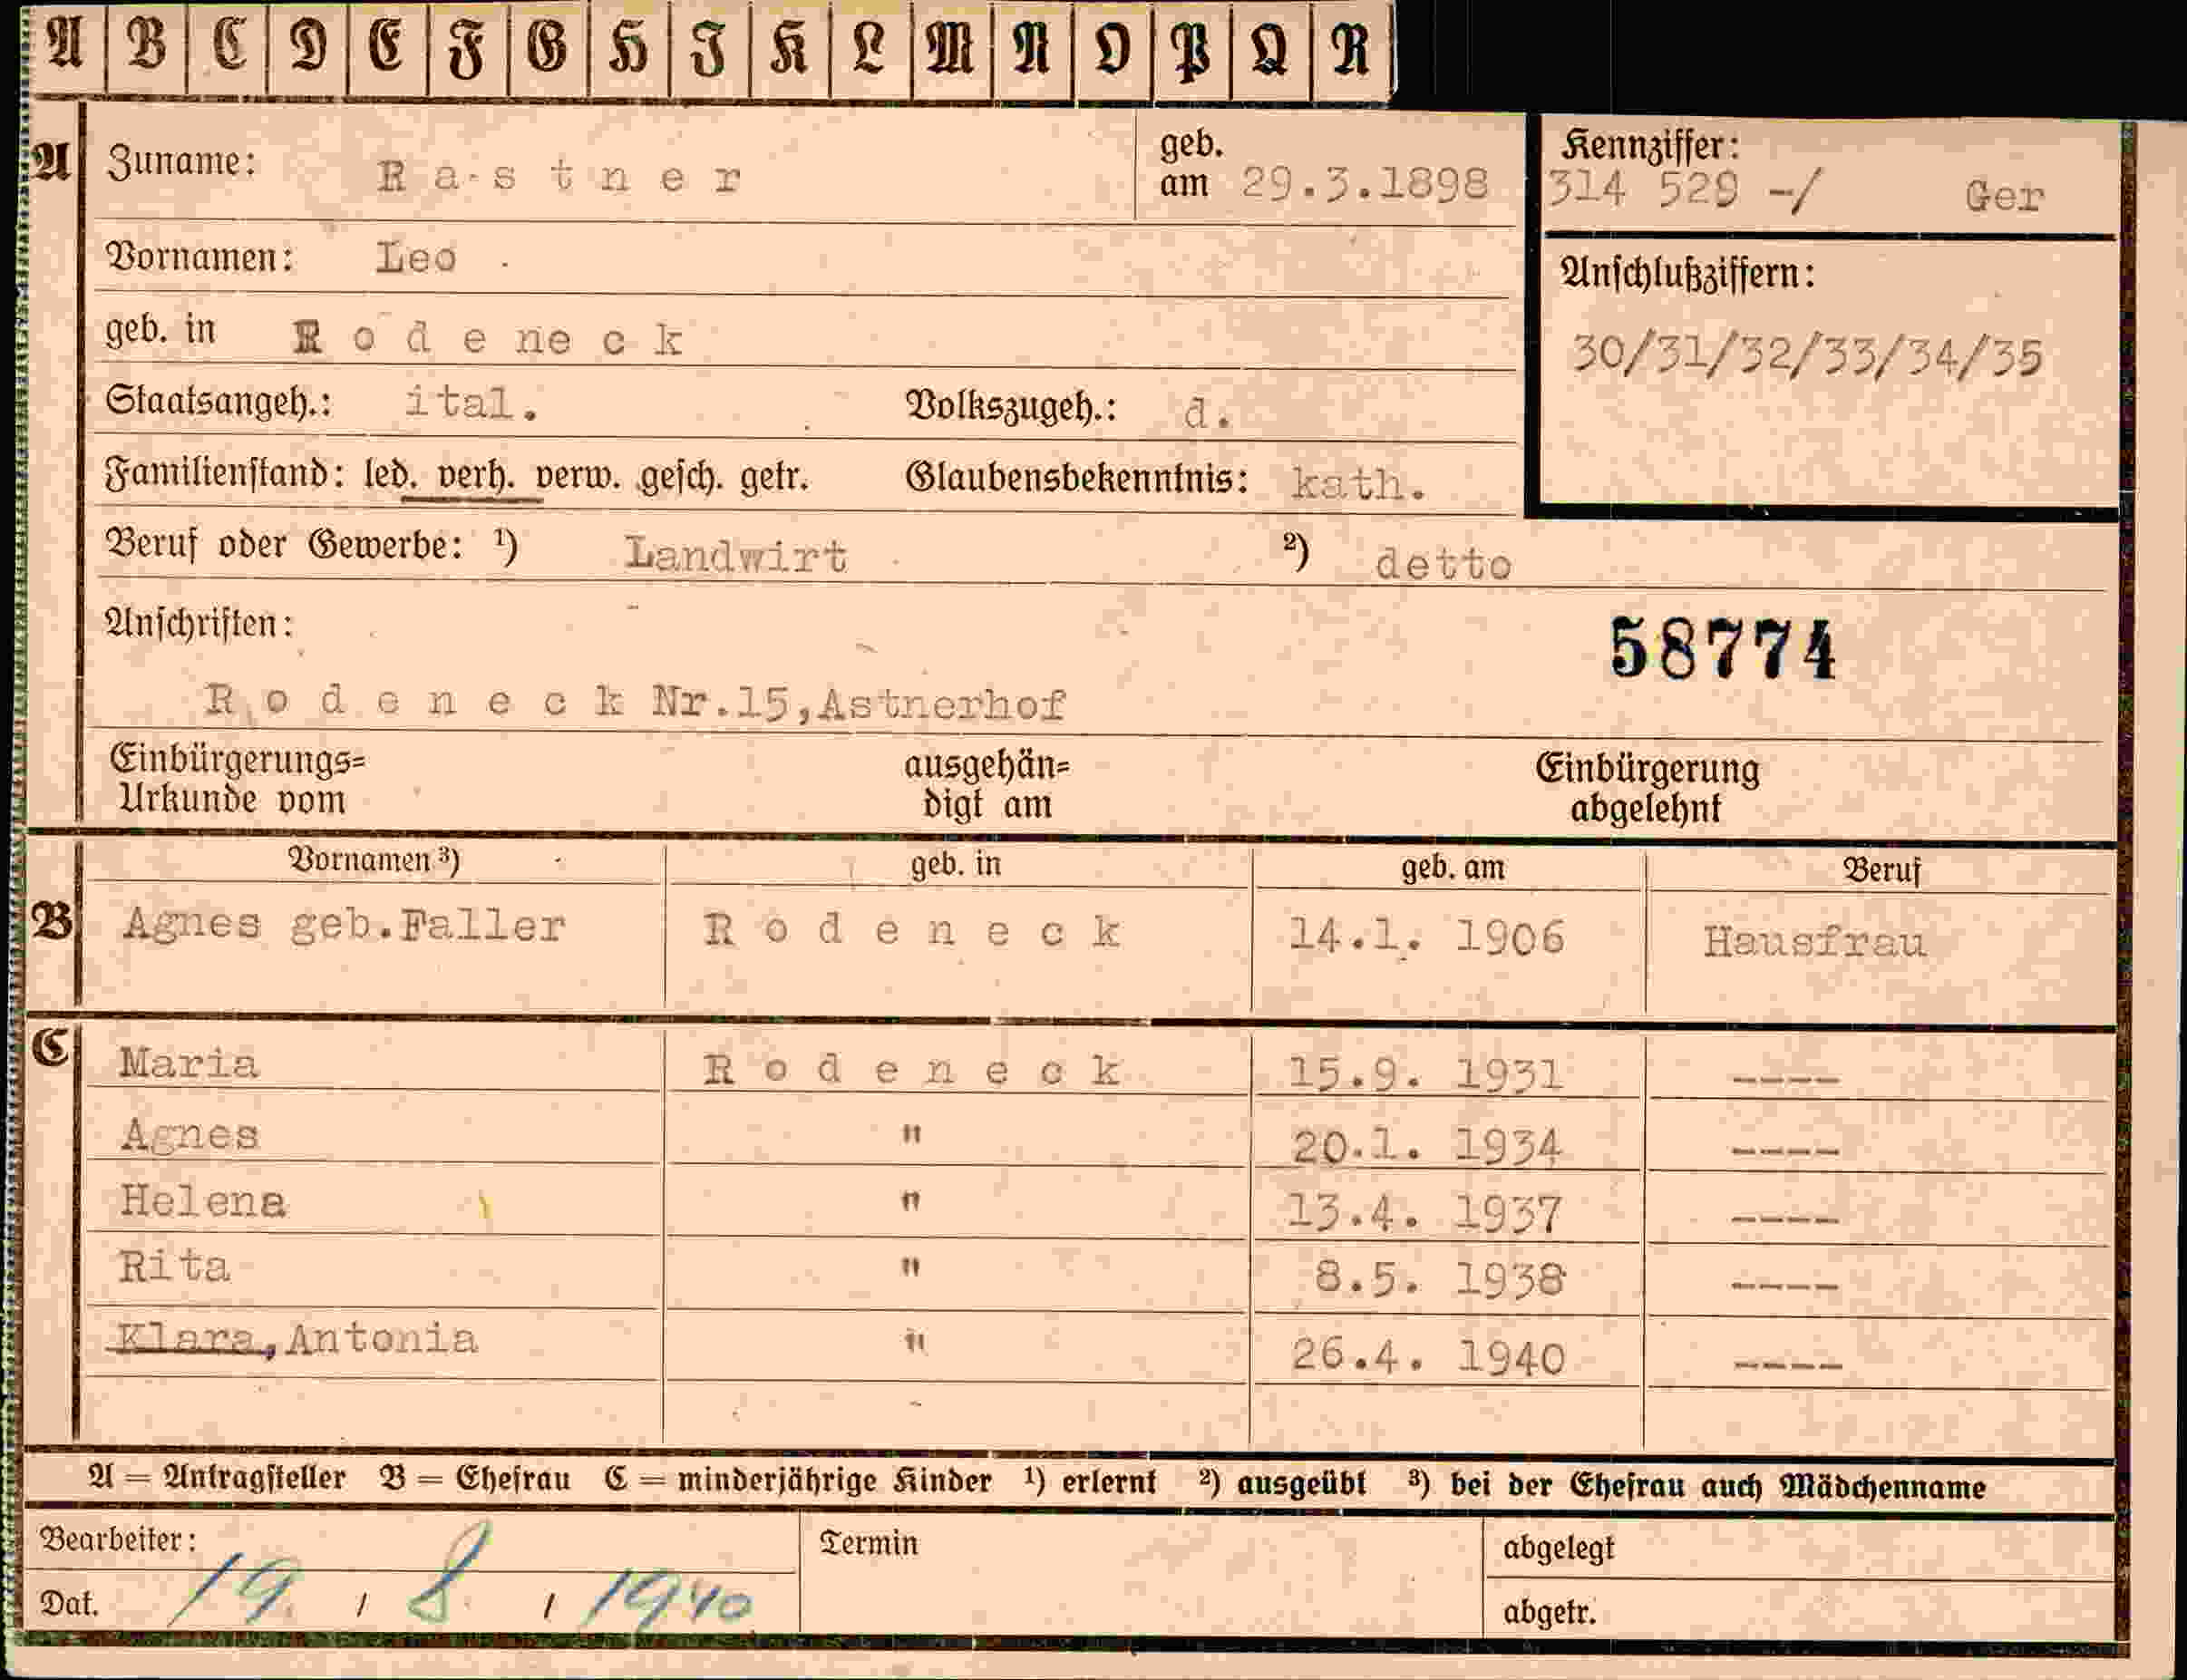 A B C D E F G H I K L M N O P Q R
A Zuname: Rastner geb. am 29.3.1898 Kennziffer: 314 529 -/ Ger
Vornamen: Leo Anschlußziffern:
geb. in Rodeneck 30/31/32/33/34/35
Staatsangeh.: ital. Volkszugeh.: d.
Familienstand: led. verh. verw. gesch. getr. Glaubensbekenntnis: kath.
Beruf oder Gewerbe: ¹) Landwirt ²) detto
Anschriften: 58774
Rodeneck Nr.15,Astnerhof
Einbürgerungs= ausgehän= Einbürgerung
Urkunde vom digt am abgelehnt
Vornamen ³) geb. in geb. am Beruf
B Agnes geb.Faller Rodeneck 14.1. 1906 Hausfrau
C Maria Rodeneck 15.9. 1931 ----
Agnes " 20.1. 1934 ----
Helena " 13.4. 1937 ----
Rita " 8.5. 1938 ----
Klara,Antonia " 26.4. 1940 ----
A = Antragsteller B = Ehefrau C = minderjährige Kinder ¹) erlernt ²) ausgeübt ³) bei der Ehefrau auch Mädchenname
Bearbeiter: Termin abgelegt
Dat. 19 / 8 / 1940 abgetr.